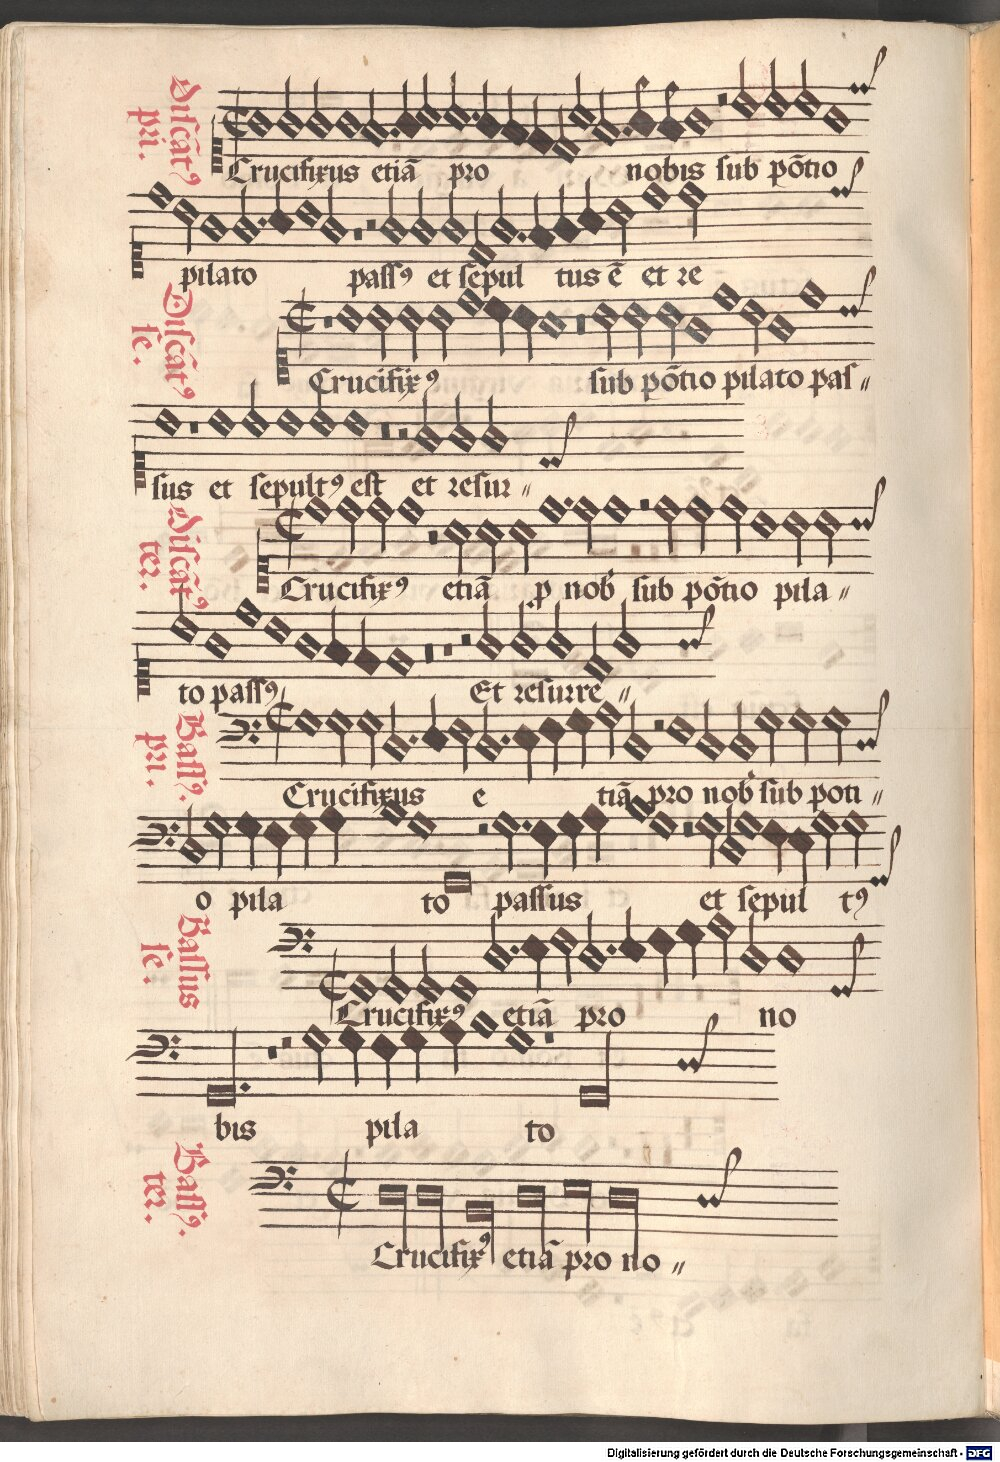 Discāt⁹
pri.
Crucifixus etiā pro nobis sub pōtio
pilato pass⁹ et sepul tus ē et re
Discāt⁹
se.
Crucifix⁹ sub pōtio pilato pas〃
sus et sepult⁹ est et resur〃
Discāt⁹
ter.
Crucifix⁹ etiā ꝓ nob sub pōtio pila〃
to pass⁹ Et resurre〃
Bass⁹.
pri.
Crucifixus e tiā pro nob sub poti〃
o pila to passus et sepul t⁹
Bassus
se.
Crucifix⁹ etiā pro no
bis pila to
Bass⁹.
ter.
Crucifix⁹ etiā pro no〃
Digitalisierung gefördert durch die Deutsche Forschungsgemeinschaft - DFG